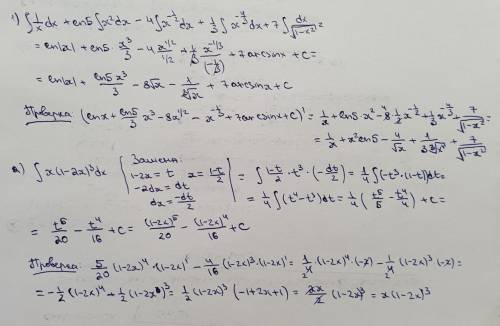 1) ∫1/x dx + en5 ∫x² dx - 4∫x^(-1/2) dx + 1/3 ∫x^(-4/3) dx + 7∫dx/√(1-x²) =
= en|x| + en5 · x³/3 - 4 x^(1/2)/(1/2) + 1/3 · x^(-1/3)/(-1/3) + 7arcsinx + C =
= en|x| + en5x³/3 - 8√x - 1/∛x + 7arcsinx + C
Проверка (enx + en5/3 x³ - 8x^(1/2) - x^(-1/3) + 7arcsinx + C)' = 1/x + en5·x² - 8·1/2 x^(-1/2) + 1/3 x^(-4/3) + 7/√(1-x²) =
= 1/x + x²en5 - 4/√x + 1/(3∛x⁴) + 7/√(1-x²)
2) ∫x(1-2x)³dx | Замена: 1-2x=t x=(1-t)/2
-2dx=dt
dx=-dt/2 | = ∫(1-t)/2 · t³ · (-dt/2) = 1/4 ∫(-t³)(1-t)dt =
= 1/4 ∫(t⁴-t³)dt = 1/4 (t⁵/5 - t⁴/4) + C =
= t⁵/20 - t⁴/16 + C = (1-2x)⁵/20 - (1-2x)⁴/16 + C
Проверка: 5/20 (1-2x)⁴·(1-2x)' - 4/16 (1-2x)³·(1-2x)' = 1/4 (1-2x)⁴·(-2) - 1/4 (1-2x)³·(-2) =
= -1/2 (1-2x)⁴ + 1/2 (1-2x)³ = 1/2 (1-2x)³·(-1+2x+1) = 2x/2 (1-2x)³ = x(1-2x)³